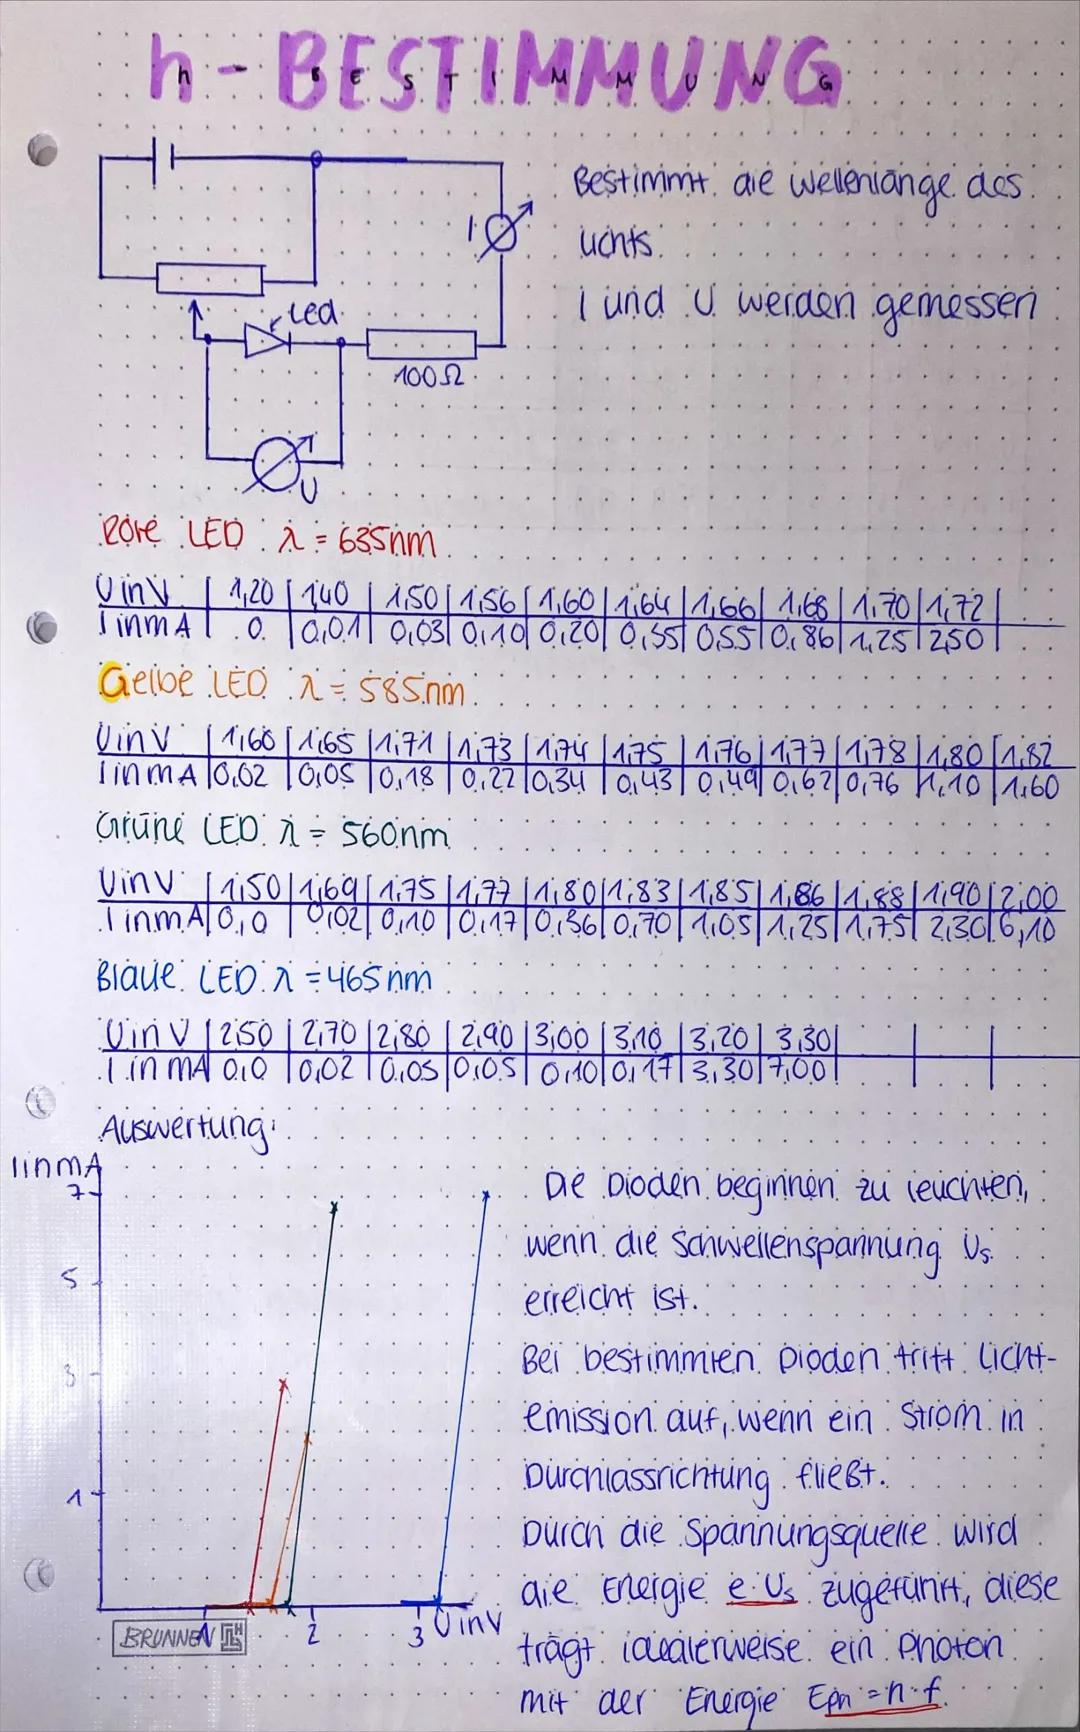 h-BESTIMMUNG
Bestimmt die Wellenlänge des
Lichts.
I und U werden gemessen
I
Led
100Ω
U
Rote LED λ = 635nm
U in V | 1,20 | 1,40 | 1,50 | 1,56 | 1,60 | 1,64 | 1,66 | 1,68 | 1,70 | 1,72
I in mA | 0 | 0,01 | 0,03 | 0,10 | 0,20 | 0,35 | 0,55 | 0,86 | 1,25 | 2,50
Gelbe LED λ = 585nm
U in V | 1,60 | 1,65 | 1,71 | 1,73 | 1,74 | 1,75 | 1,76 | 1,77 | 1,78 | 1,80 | 1,82
I in mA | 0,02 | 0,05 | 0,18 | 0,22 | 0,34 | 0,43 | 0,49 | 0,62 | 0,76 | 1,10 | 1,60
Grüne LED λ = 560nm
U in V | 1,50 | 1,69 | 1,75 | 1,77 | 1,80 | 1,83 | 1,85 | 1,86 | 1,88 | 1,90 | 2,00
I in mA | 0,0 | 0,02 | 0,10 | 0,17 | 0,36 | 0,70 | 1,05 | 1,25 | 1,75 | 2,30 | 6,10
Blaue LED λ = 465nm
U in V | 2,50 | 2,70 | 2,80 | 2,90 | 3,00 | 3,10 | 3,20 | 3,30
I in mA | 0,0 | 0,02 | 0,05 | 0,05 | 0,10 | 0,17 | 3,30 | 7,00
Auswertung:
I in mA
7
5
3
1
1
2
3
U in V
BRUNNEN
Die Dioden beginnen zu leuchten,
wenn die Schwellenspannung Us
erreicht ist.
Bei bestimmten Dioden tritt Licht-
emission auf, wenn ein Strom in
Durchlassrichtung fließt.
Durch die Spannungsquelle wird
die Energie e·Us zugeführt, diese
trägt idealerweise ein Photon
mit der Energie Eph = h·f